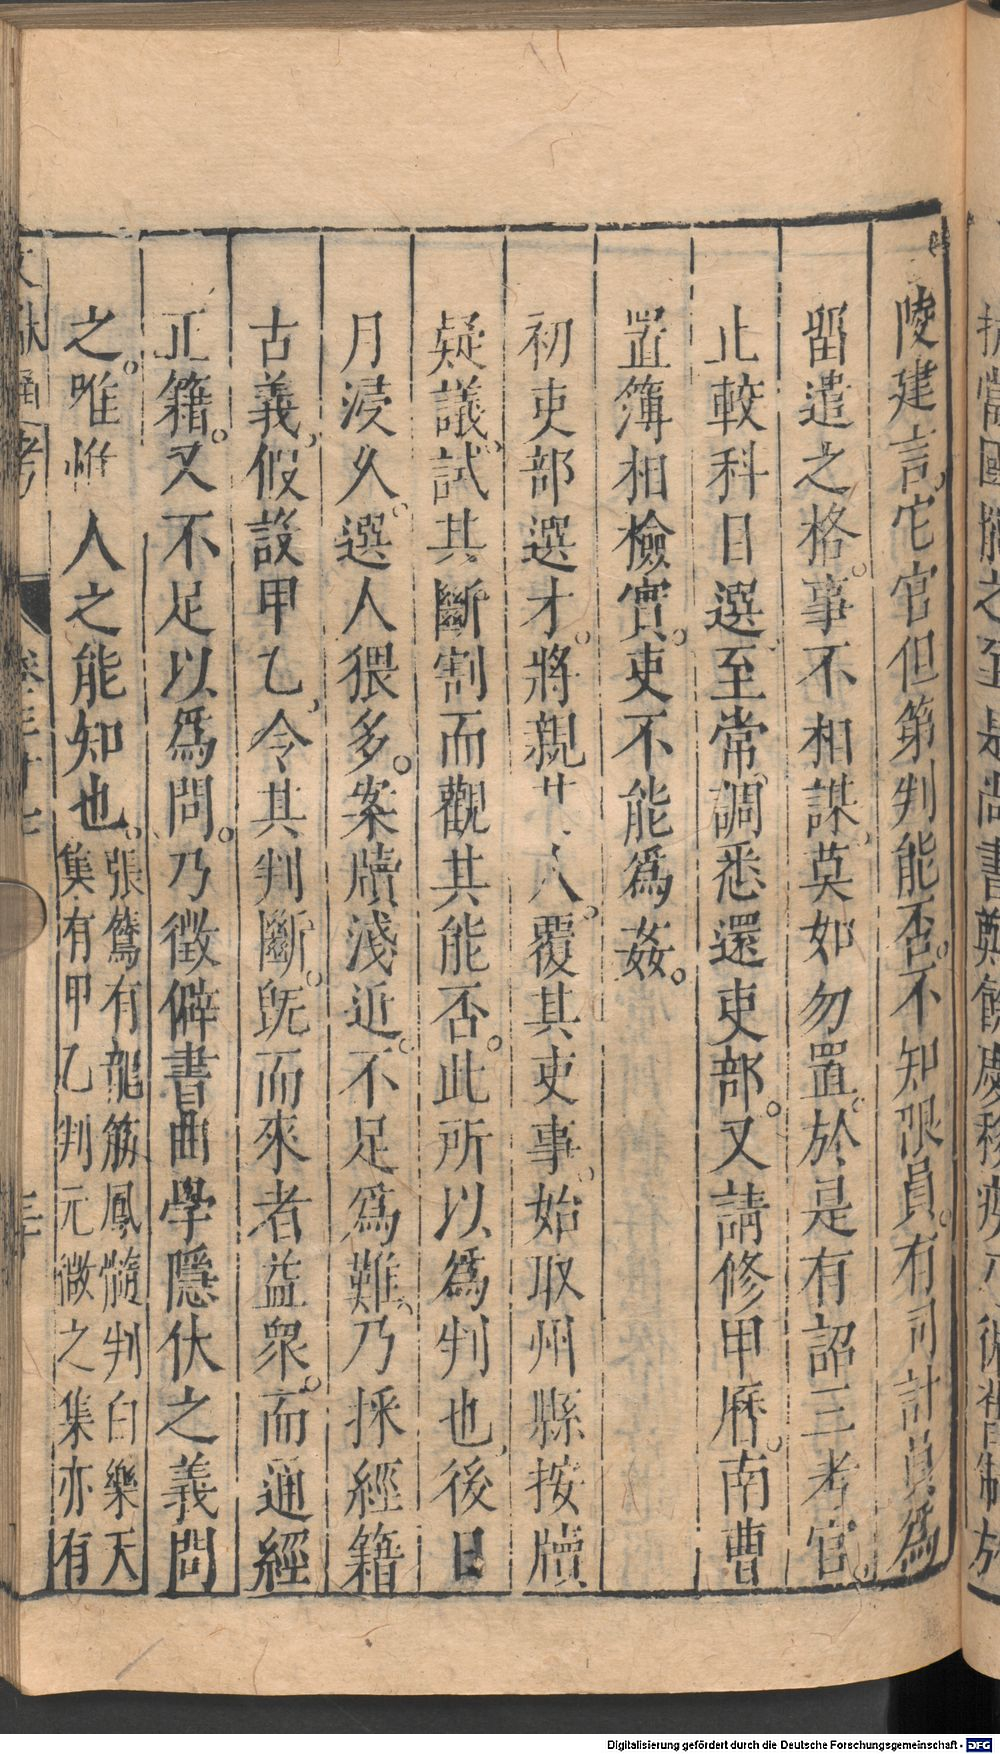 陵建言、它官但第判能否。不知限員。有司計員爲
留遣之格。事不相謀、莫如勿置。於是有詔三考官。
止較科目選、至常調悉還吏部。又請修甲曆。南曹
置簿相檢實。吏不能爲姦。
初吏部選才。將親其人。覆其吏事。始取州縣按牘
疑議。試其斷割而觀其能否。此所以爲判也、後日
月浸久。選人猥多。案牘淺近。不足爲難、乃採經籍
古義、假設甲乙、令其判斷。旣而來者益衆。而通經
正籍。又不足以爲問。乃徵僻書曲學隱伏之義問
之。唯惟人之能知也。張鷟有龍筋鳳髓判白樂天
集有甲乙判元微之集亦有
文獻通考 卷三十七
Digitalisierung gefördert durch die Deutsche Forschungsgemeinschaft - DFG